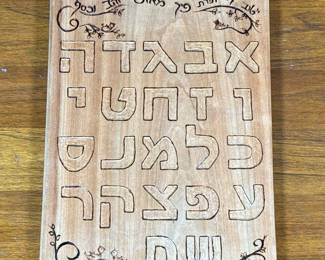 וכסף
א ב ג ד ה
ו ז ח ט י
כ ל מ נ ס
ע פ צ ק ר
ש ת